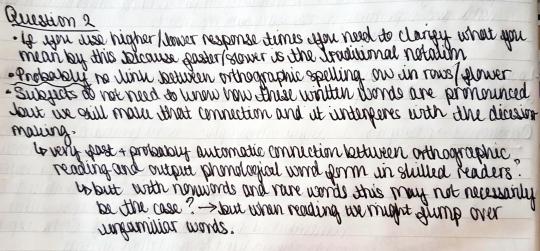 Question 2
• If you use higher/lower response times you need to clarify what you
mean by this because faster/slower is the traditional notation
• Probably no link between orthographic spelling ow in rows/flower
• Subjects do not need to know how these written words are pronounced
but we still make that connection and it interferes with the decision
making.
↳ very fast + probably automatic connection between orthographic
reading and output phonological word form in skilled readers?
↳ but with nonwords and rare words this may not necessarily
be the case? → but when reading we might jump over
unfamiliar words.